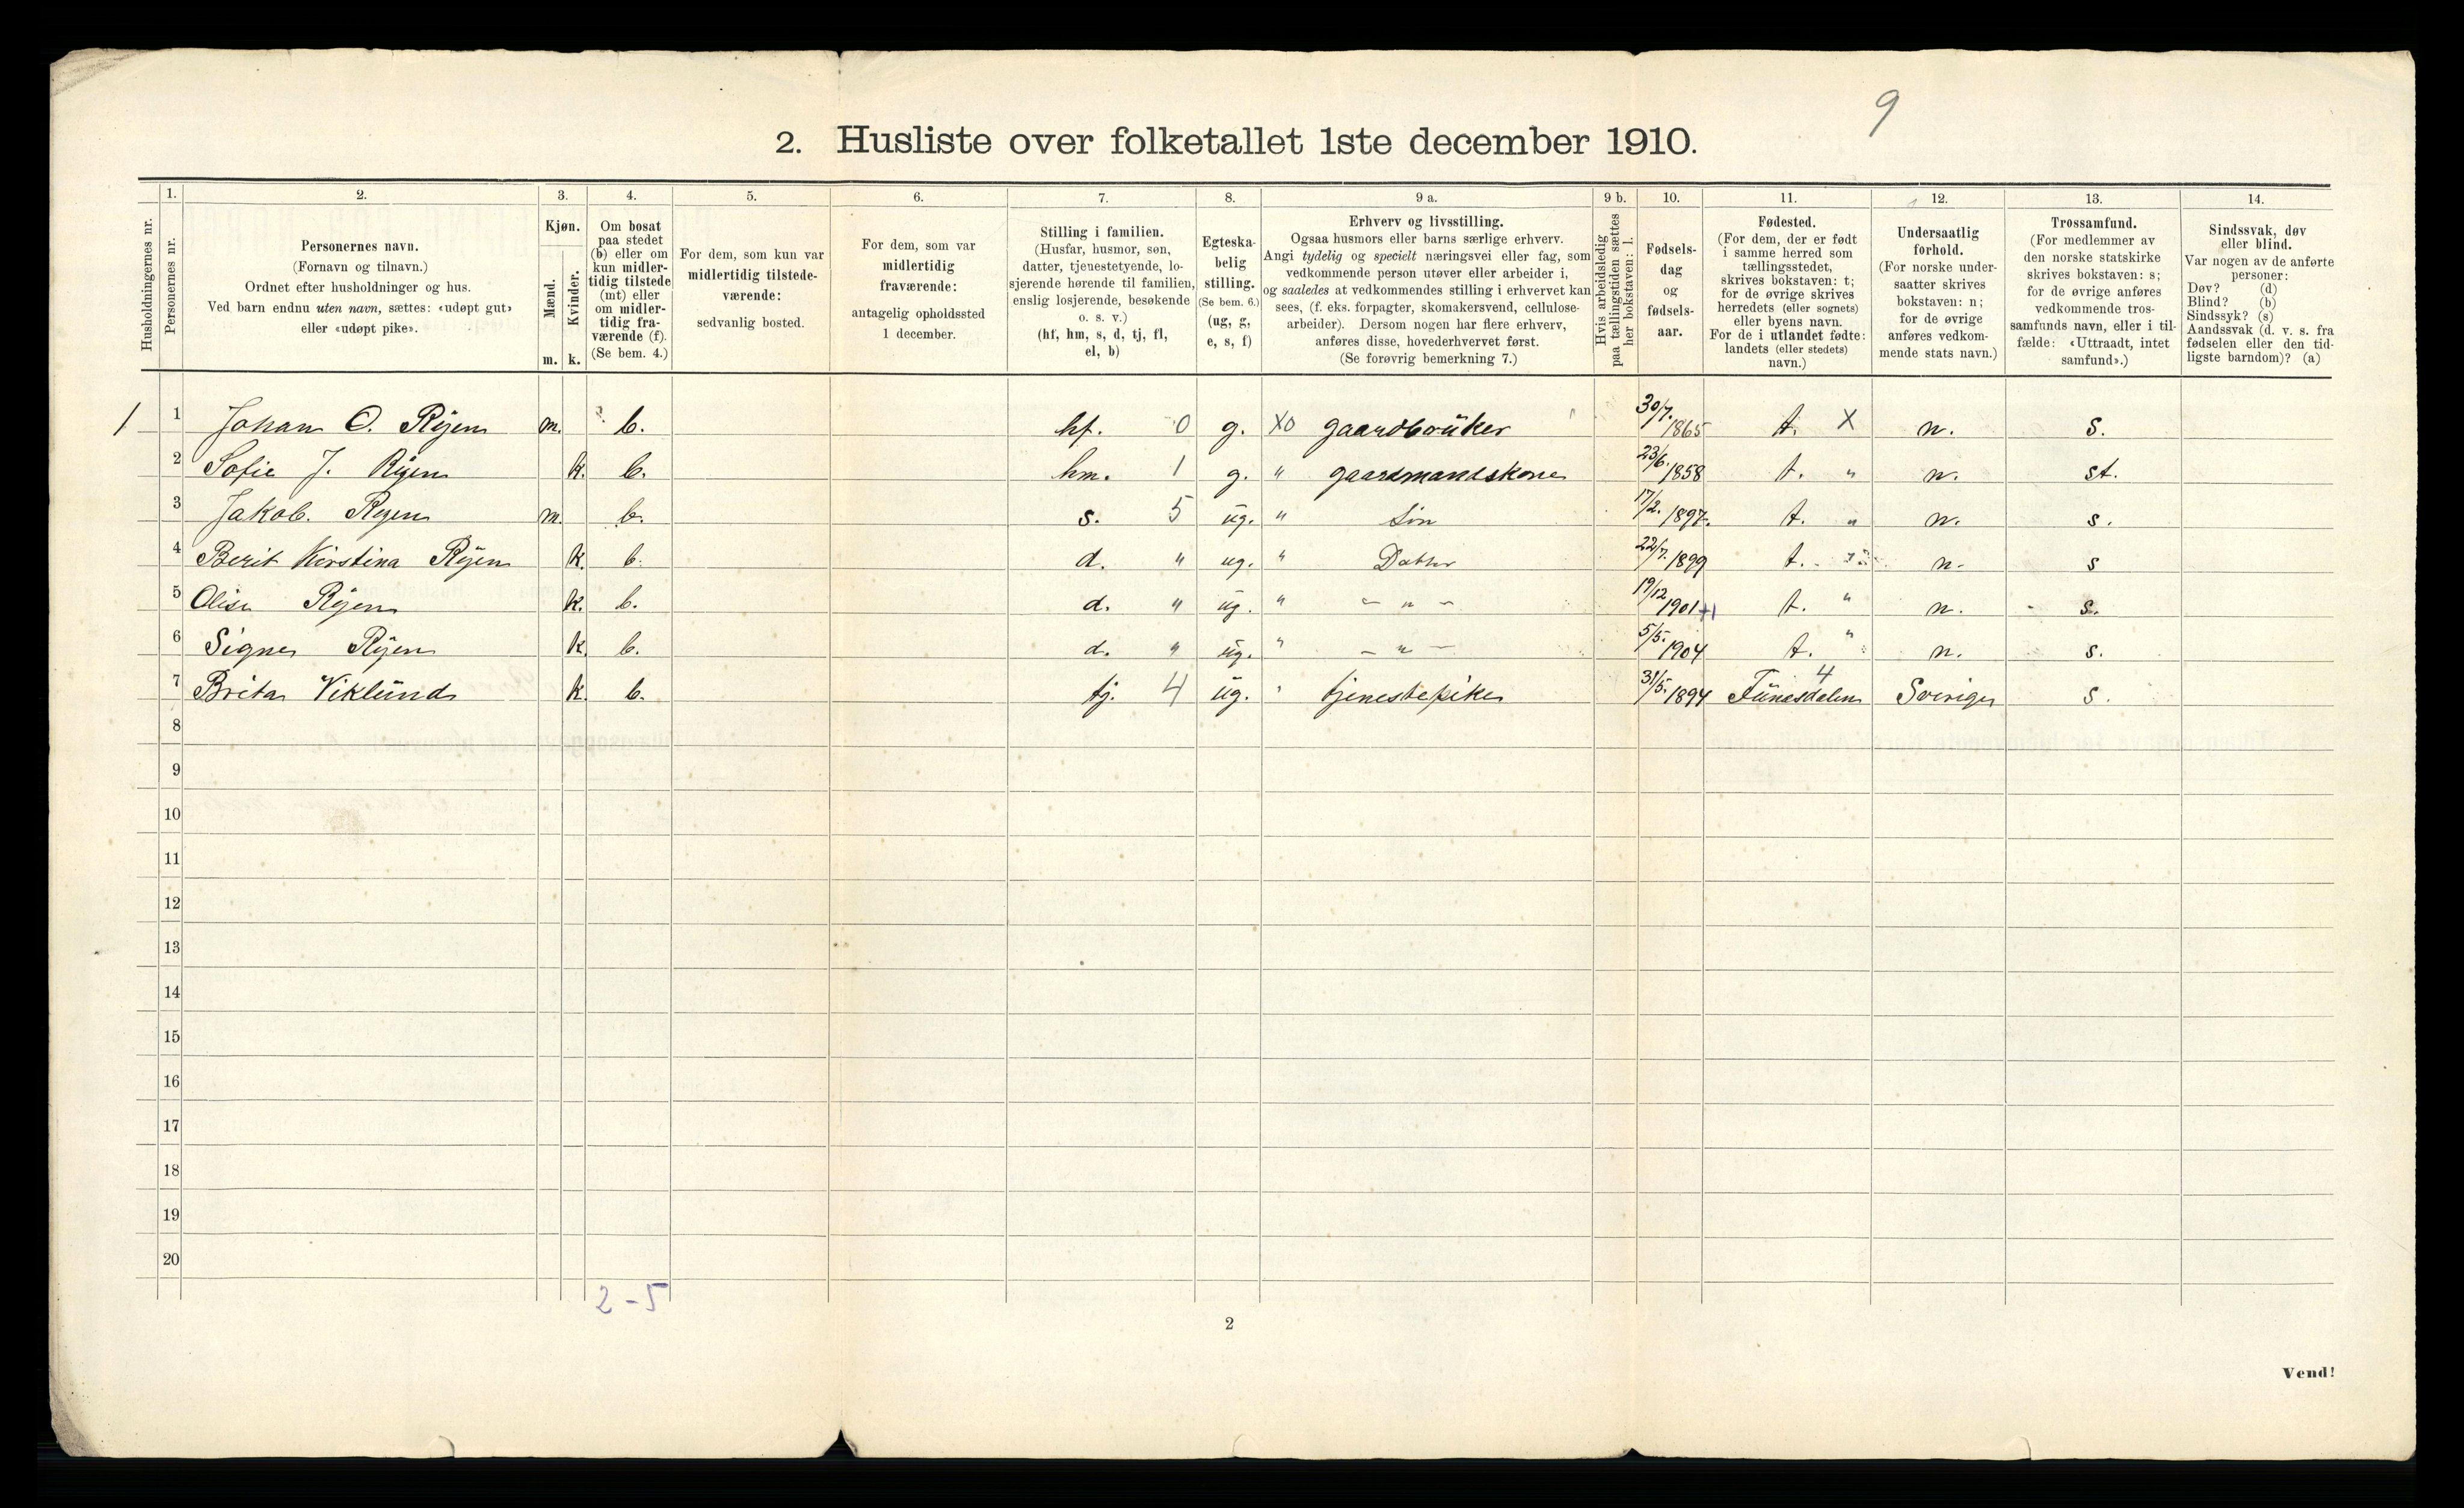 9
2. Husliste over folketallet 1ste december 1910.
Husholdningernes nr.
1.
Personernes nr.
2.
Personernes navn.
(Fornavn og tilnavn.)
Ordnet efter husholdninger og hus.
Ved barn endnu uten navn, sættes: «udøpt gut»
eller «udøpt pike».
3.
Kjøn.
Mænd.
m.
Kvinder.
k.
4.
Om bosat
paa stedet
(b) eller om
kun midler-
tidig tilstede
(mt) eller
om midler-
tidig fra-
værende (f).
(Se bem. 4.)
5.
For dem, som kun var
midlertidig tilstede-
værende:
sedvanlig bosted.
6.
For dem, som var
midlertidig
fraværende:
antagelig opholdssted
1 december.
7.
Stilling i familien.
(Husfar, husmor, søn,
datter, tjenestetyende, lo-
sjerende hørende til familien,
enslig losjerende, besøkende
o. s. v.)
(hf, hm, s, d, tj, fl,
el, b)
8.
Egteska-
belig
stilling.
(Se bem. 6.)
(ug, g,
e, s, f)
9 a.
Erhverv og livsstilling.
Ogsaa husmors eller barns særlige erhverv.
Angi tydelig og specielt næringsvei eller fag, som
vedkommende person utøver eller arbeider i,
og saaledes at vedkommendes stilling i erhvervet kan
sees, (f. eks. forpagter, skomakersvend, cellulose-
arbeider). Dersom nogen har flere erhverv,
anføres disse, hovederhvervet først.
(Se forøvrig bemerkning 7.)
9 b.
Hvis arbeidsledig
paa tællingstiden sættes
her bokstaven: l.
10.
Fødsels-
dag
og
fødsels-
aar.
11.
Fødested.
(For dem, der er født
i samme herred som
tællingsstedet,
skrives bokstaven: t;
for de øvrige skrives
herredets (eller sognets)
eller byens navn.
For de i utlandet fødte:
landets (eller stedets)
navn.)
12.
Undersaatlig
forhold.
(For norske under-
saatter skrives
bokstaven: n;
for de øvrige
anføres vedkom-
mende stats navn.)
13.
Trossamfund.
(For medlemmer av
den norske statskirke
skrives bokstaven: s;
for de øvrige anføres
vedkommende tros-
samfunds navn, eller i til-
fælde: «Uttraadt, intet
samfund».)
14.
Sindssvak, døv
eller blind.
Var nogen av de anførte
personer:
Døv? (d)
Blind? (b)
Sindssyk? (s)
Aandssvak (d. v. s. fra
fødselen eller den tid-
ligste barndom)? (a)
1 1 Johan O. Ryen m. b. hf. 0 g. X0 gaardbrüker 30/7. 1865 t. X n. s.
2 Sofie J. Ryen k. b. hm. 1 g. " gaardmandskone 23/6. 1858 t. " n. st.
3 Jakob. Ryen m. b. s. 5 ug. " Søn 17/2. 1897. t. " n. s.
4 Berit Kirstina Ryen k. b. d. " ug. " Datter 22/7. 1899 t. " n. s
5 Olise Ryen k. b. d. " ug. " – " – 19/12 1901 +1 t. " n. s.
6 Signe Ryen k. b. d. " ug. " – " – 5/5. 1904 t. " n. s.
7 Brita Viklund k. b. tj. 4 ug. " tjenestepike 31/5. 1894 Funesdalen 4 Sverige s.
8
9
10
11
12
13
14
15
16
17
18
19
20
2 - 5
2
Vend!